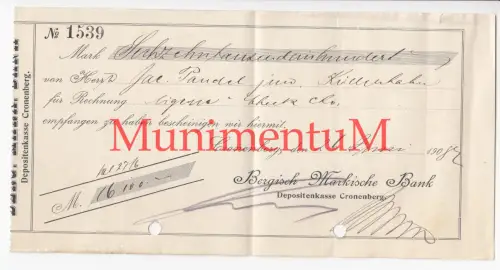 № 1539
Mark Sechzehntausendeinhundert
von Herrn Jac. Pandel jun. Küllenhahn
für Rechnung eigene Check Cto.
empfangen zu haben bescheinigen wir hiermit.
MunimentuM
Cronenberg, den
190
Bergisch Märkische Bank
Depositenkasse Cronenberg.
M. 16100.—
Depositenkasse Cronenberg.